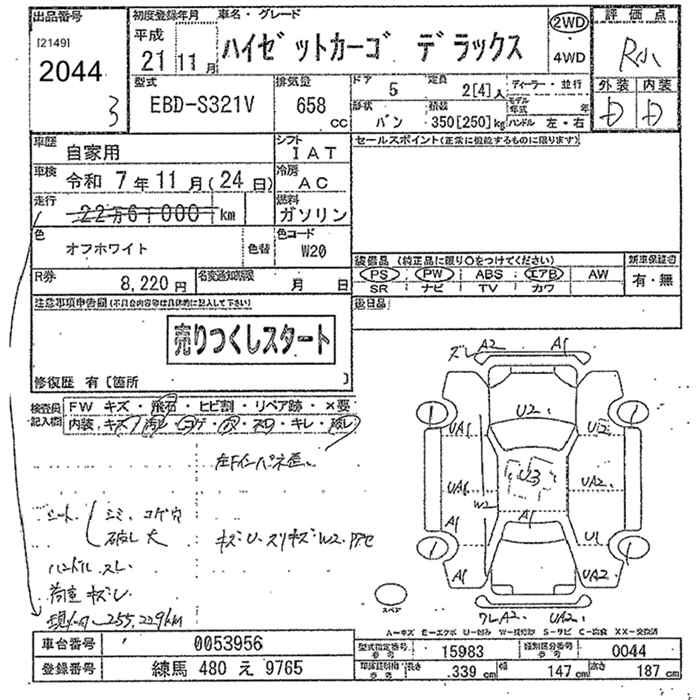 出品番号 初度登録年月 車名・グレード 評価点
[2149] 平成 2WD
2044 21年 11月 ハイゼットカーゴ デラックス ・ R小
3 4WD
型式 排気量 ドア 定員 ディーラー・並行 外装 内装
EBD-S321V 658 CC 5 2[4]人 D D
形状 積載 モデル年式 年
バン 350[250]kg ハンドル 左・右
車歴 自家用 シフト IAT セールスポイント(正常に機能するものに限ります)
車検 令和 7年11月(24日) 冷房 AC
走行 22万6千000km 燃料 ガソリン
色 オフホワイト 色替 色コード W20
装備品 (純正品に限り〇をつけてください) 新車保証書
PS PW ABS エアB AW 有・無
SR ナビ TV カワ
R券 8,220円 名変通知期限 月 日
後日品
注意事項申告欄(不具合内容等は具体的に記入して下さい)
売りつくしスタート
修復歴 有 [箇所 ]
検査員記入欄 FW キズ・飛石・ヒビ割・リペア跡・×要
内装 キズ・汚レ・コゲ・穴・スレ・キレ・破レ
シート シミ コゲ穴
破レ大
キズU.スリキズW2.
ハンドル スレ
荷室 キズレ
255,229km
ズレ A2 A1
U2
UA1
U3
UA2
W2
A1 A1
U1
A1 UA2
ワレA2 UA2
スペア
A-キズ E-エクボ U-凹み W-補修跡 S-サビ C-腐食 XX-交換済
車台番号 0053956 型式指定番号 15983 類別区分番号 0044
登録番号 練馬 480 え 9765 長さ 339cm 幅 147cm 高さ 187cm